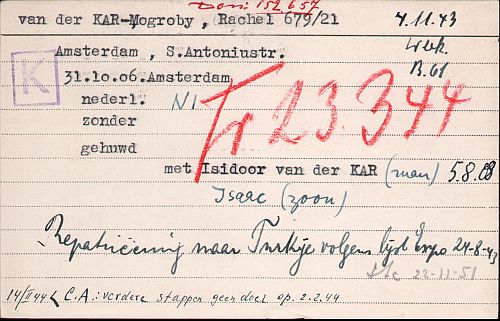 Dom: 152657
van der KAR-Mogroby , Rachel 679/21 4.11.43
Amsterdam , S.Antoniustr. Wbk
K 31.10.06.Amsterdam B.61
nederl. N1
zonder Fr 23344
gehuwd
met Isidoor van der KAR (man) 5.8.08
Isaac (zoon)
Repatriëering naar Turkije volgens lijst Expo 24-8-43
22-11-51
14/II 44 < C.A.: verdere stappen geen doel op. 2.2.44